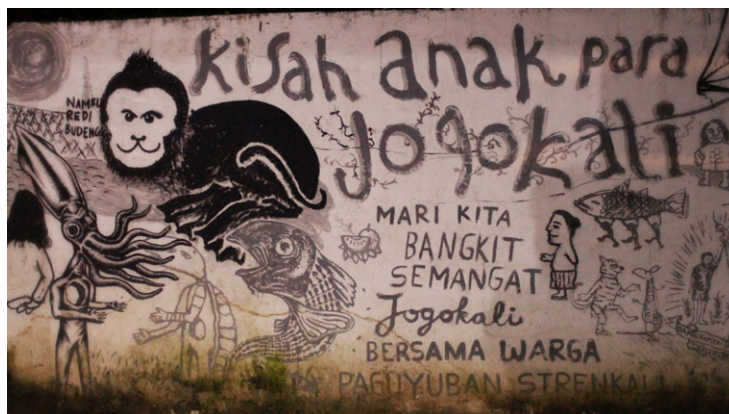 kisah anak para
Jogokali
NAMKU
REDI
BUDENG
MARI KITA
BANGKIT
SEMANGAT
Jogokali
BERSAMA WARGA
PAGUYUBAN STRENKALI